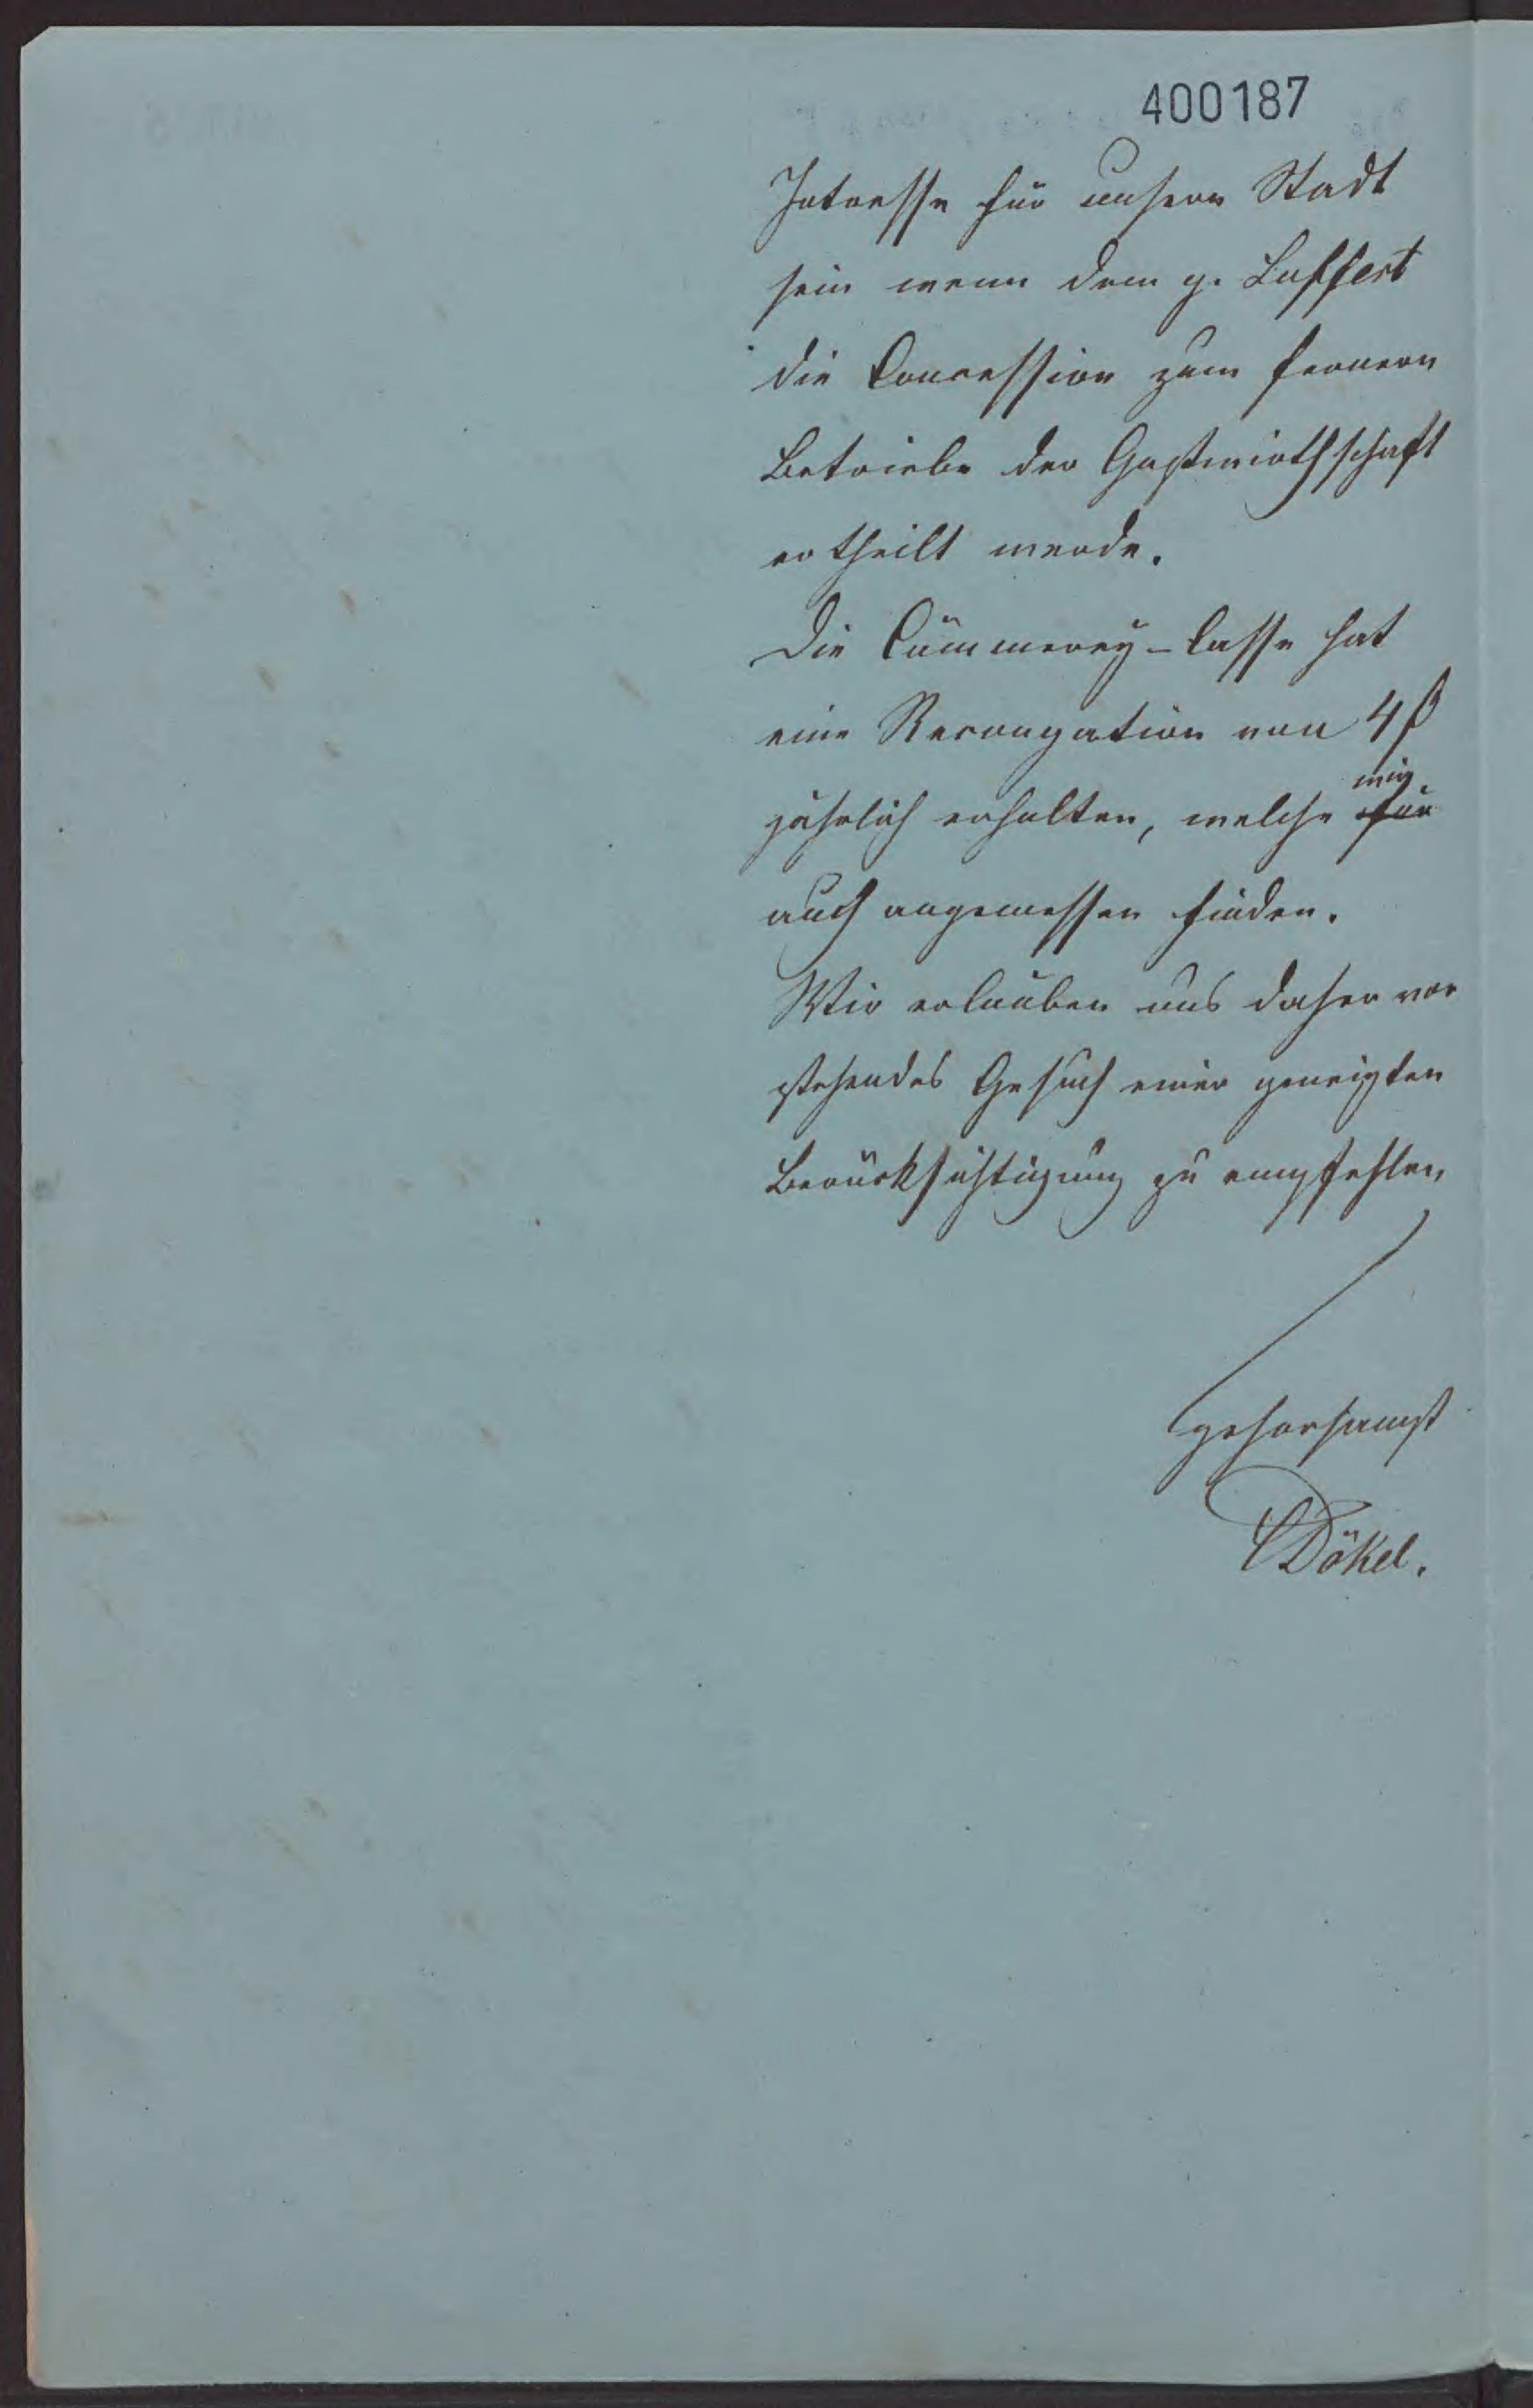 400187
Intresse für unsere Stadt
sein wenn dem p. Luffert
die Concession zum fernern
Betriebe der Gastwirthschaft
ertheilt werde.
Die Cämmerey-Casse hat
eine Recongation von 4
wir
jährlich erhalten, welche für
auch angemessen finden.
Wir erlauben uns daher vor
stehendes Gesuch einer geneigten
Berücksichtigung zu empfehlen,
gehorsamst
Dökel.